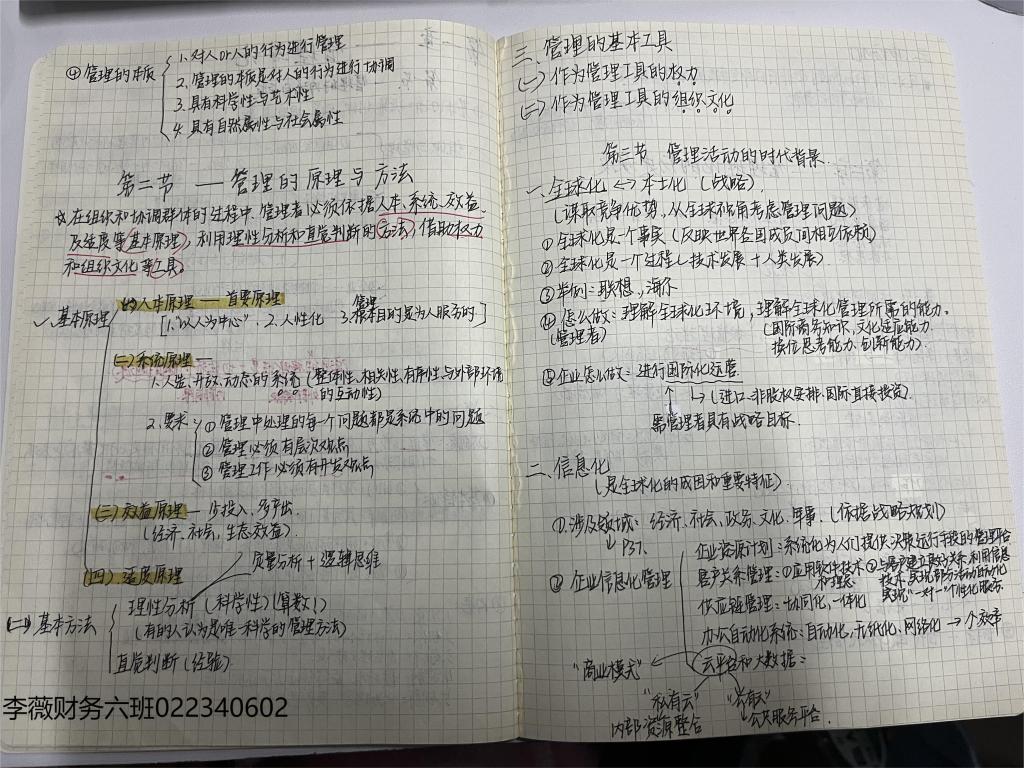 ④ 管理的本质
1. 对人or人的行为进行管理
2. 管理的本质是对人的行为进行协调
3. 具有科学性与艺术性
4. 具有自然属性与社会属性
第二节 — 管理的原理与方法
在组织和协调群体的过程中、管理者必须依据人本、系统、效益、
及适度等基本原理，利用理性分析和直觉判断的方法，借助权力
和组织文化等工具。
一、基本原理
(一)人本原理 —— 首要原理
[1."以人为中心". 2.人性化 3.管理根本目的是为人服务的]
(二)系统原理 —
1.人造、开放、动态的系统 (整体性、相关性、有序性与外部环境
的互动性)
2.要求
① 管理中处理的每个问题都是系统中的问题
② 管理必须有层次观点
③ 管理工作必须有开发观点
(三)效益原理 — 少投入、多产出.
(经济、社会、生态效益)
(四) 适度原理
质量分析 + 逻辑思维
(二) 基本方法
理性分析 (科学性) (算数!)
(有的人认为是唯一科学的管理方法)
直觉判断 (经验)
李薇财务六班022340602
三、管理的基本工具
(一) 作为管理工具的权力
(二) 作为管理工具的组织文化
第三节 管理活动的时代背景.
一、全球化 <-> 本土化 (战略).
(谋取竞争优势、从全球视角考虑管理问题)
① 全球化是一个事实 (反映世界各国成员间相互依赖)
② 全球化是一个过程 (技术发展 + 人类发展)
③ 举例: 联想、海尔
④ 怎么做: 理解全球化环境, 理解全球化管理所需的能力.
(管理者)
(国际商务知识, 文化适应能力
换位思考能力、创新能力).
⑤ 企业怎么做: 进行国际化运营
↳ (进口、非股权安排、国际直接投资)
需管理者具有战略目标.
二、信息化
(是全球化的成因和重要特征)
①.涉及领域: 经济、社会、政务、文化、军事. (依据战略规划)
↳ P37.
② 企业信息化管理
企业资源计划: 系统化为人们提供、决策运行手段的管理平台
客户关系管理: ①应用软件技术 ②与客户建立良好关系, 利用信息
技术, 实现部分活动自动化
实现"一对一"个性化服务
供应链管理: 协同化, 一体化
办公自动化系统: 自动化, 无纸化、网络化 → 个效率
云平台和大数据:
"商业模式"
"私有云"
内部资源整合
"公有云"
↳ 公共服务平台.